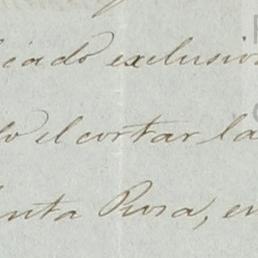 icado exclusiv
do el cortar la
anta Rosa, en